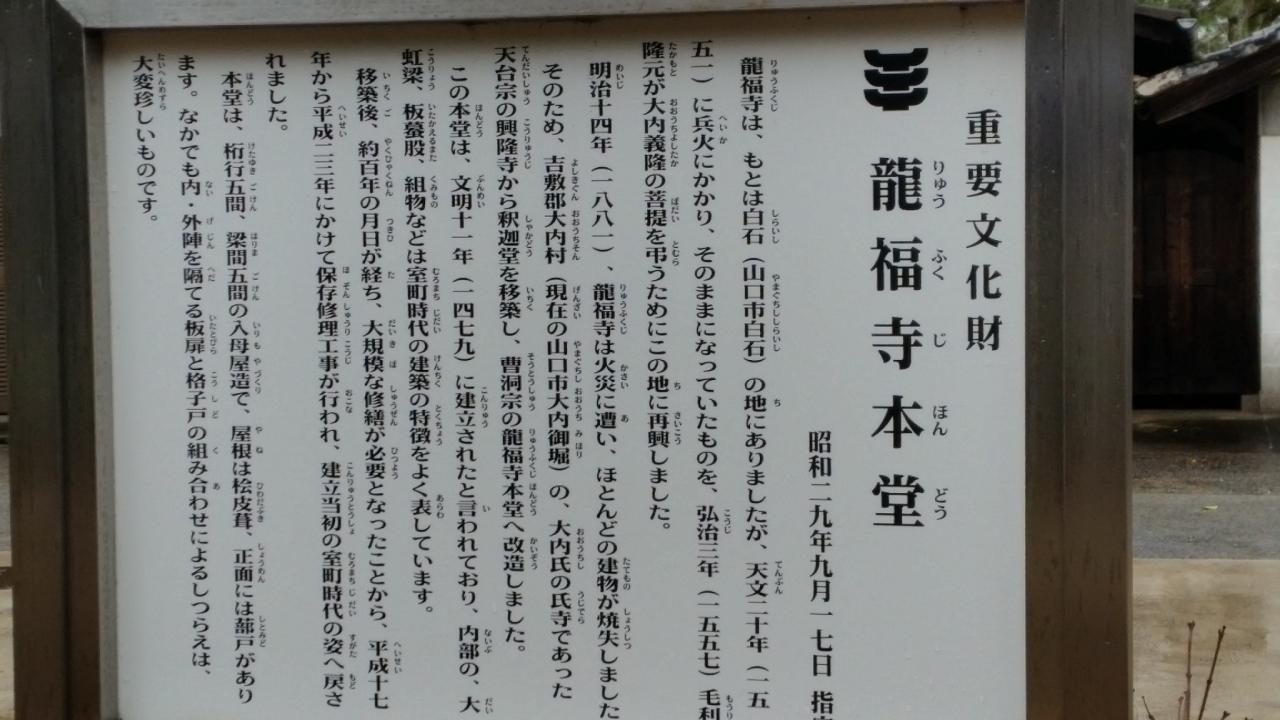 重要文化財
龍福寺本堂
昭和二九年九月一七日 指
龍福寺は、もとは白石（山口市白石）の地にありましたが、天文二十年（一五
五一）に兵火にかかり、そのままになっていたものを、弘治三年（一五五七）毛利
隆元が大内義隆の菩提を弔うためにこの地に再興しました。
明治十四年（一八八一）、龍福寺は火災に遭い、ほとんどの建物が焼失しました
そのため、吉敷郡大内村（現在の山口市大内御堀）の、大内氏の氏寺であった
天台宗の興隆寺から釈迦堂を移築し、曹洞宗の龍福寺本堂へ改造しました。
この本堂は、文明十一年（一四七九）に建立されたと言われており、内部の、大
虹梁、板蟇股、組物などは室町時代の建築の特徴をよく表しています。
移築後、約百年の月日が経ち、大規模な修繕が必要となったことから、平成十七
年から平成二三年にかけて保存修理工事が行われ、建立当初の室町時代の姿へ戻さ
れました。
本堂は、桁行五間、梁間五間の入母屋造で、屋根は桧皮葺、正面には蔀戸があり
ます。なかでも内・外陣を隔てる板扉と格子戸の組み合わせによるしつらえは、
大変珍しいものです。